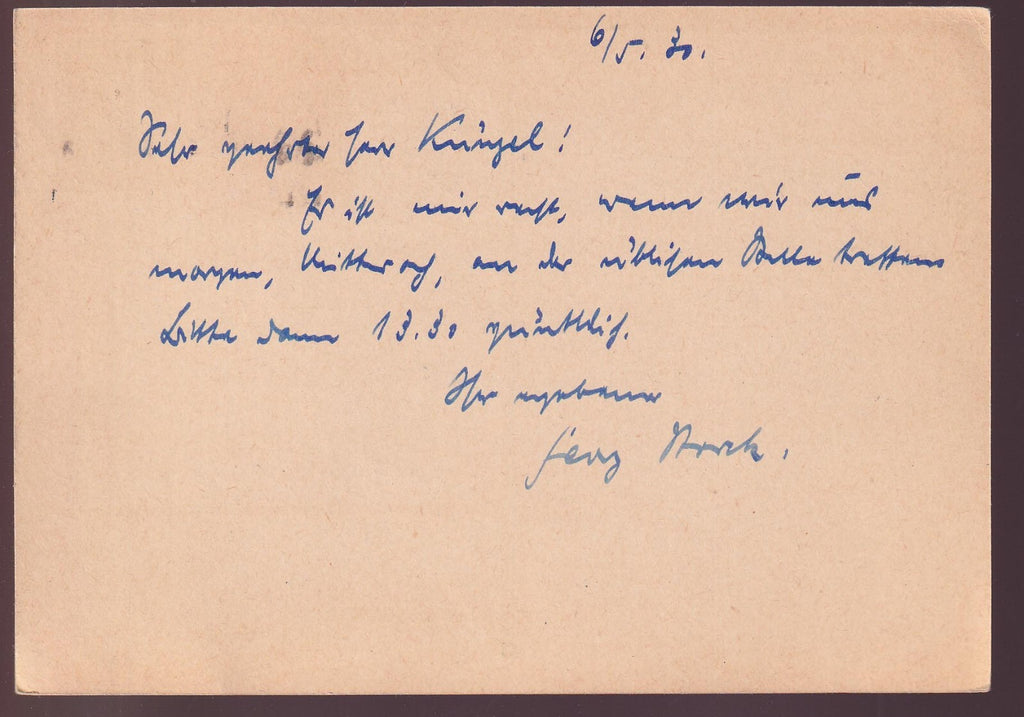 6/5. 30.
Sehr geehrter Herr Künzel!
Es ist mir recht, wenn wir uns
morgen, Mittwoch, an der üblichen Stelle treffen.
Bitte dann 13.30 pünktlich.
Ihr ergebener